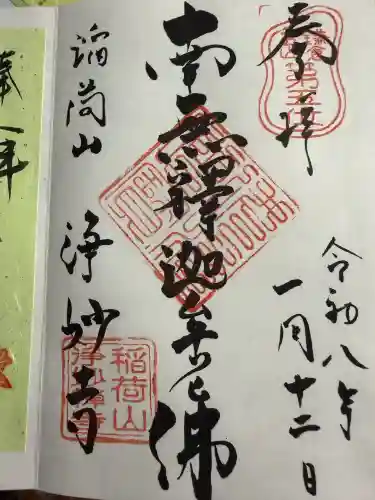 奉拝
第五
令和八年
一月十二日
南無釋迦牟尼佛
稲荷山
浄妙寺
稲荷山
浄妙寺
奉拝